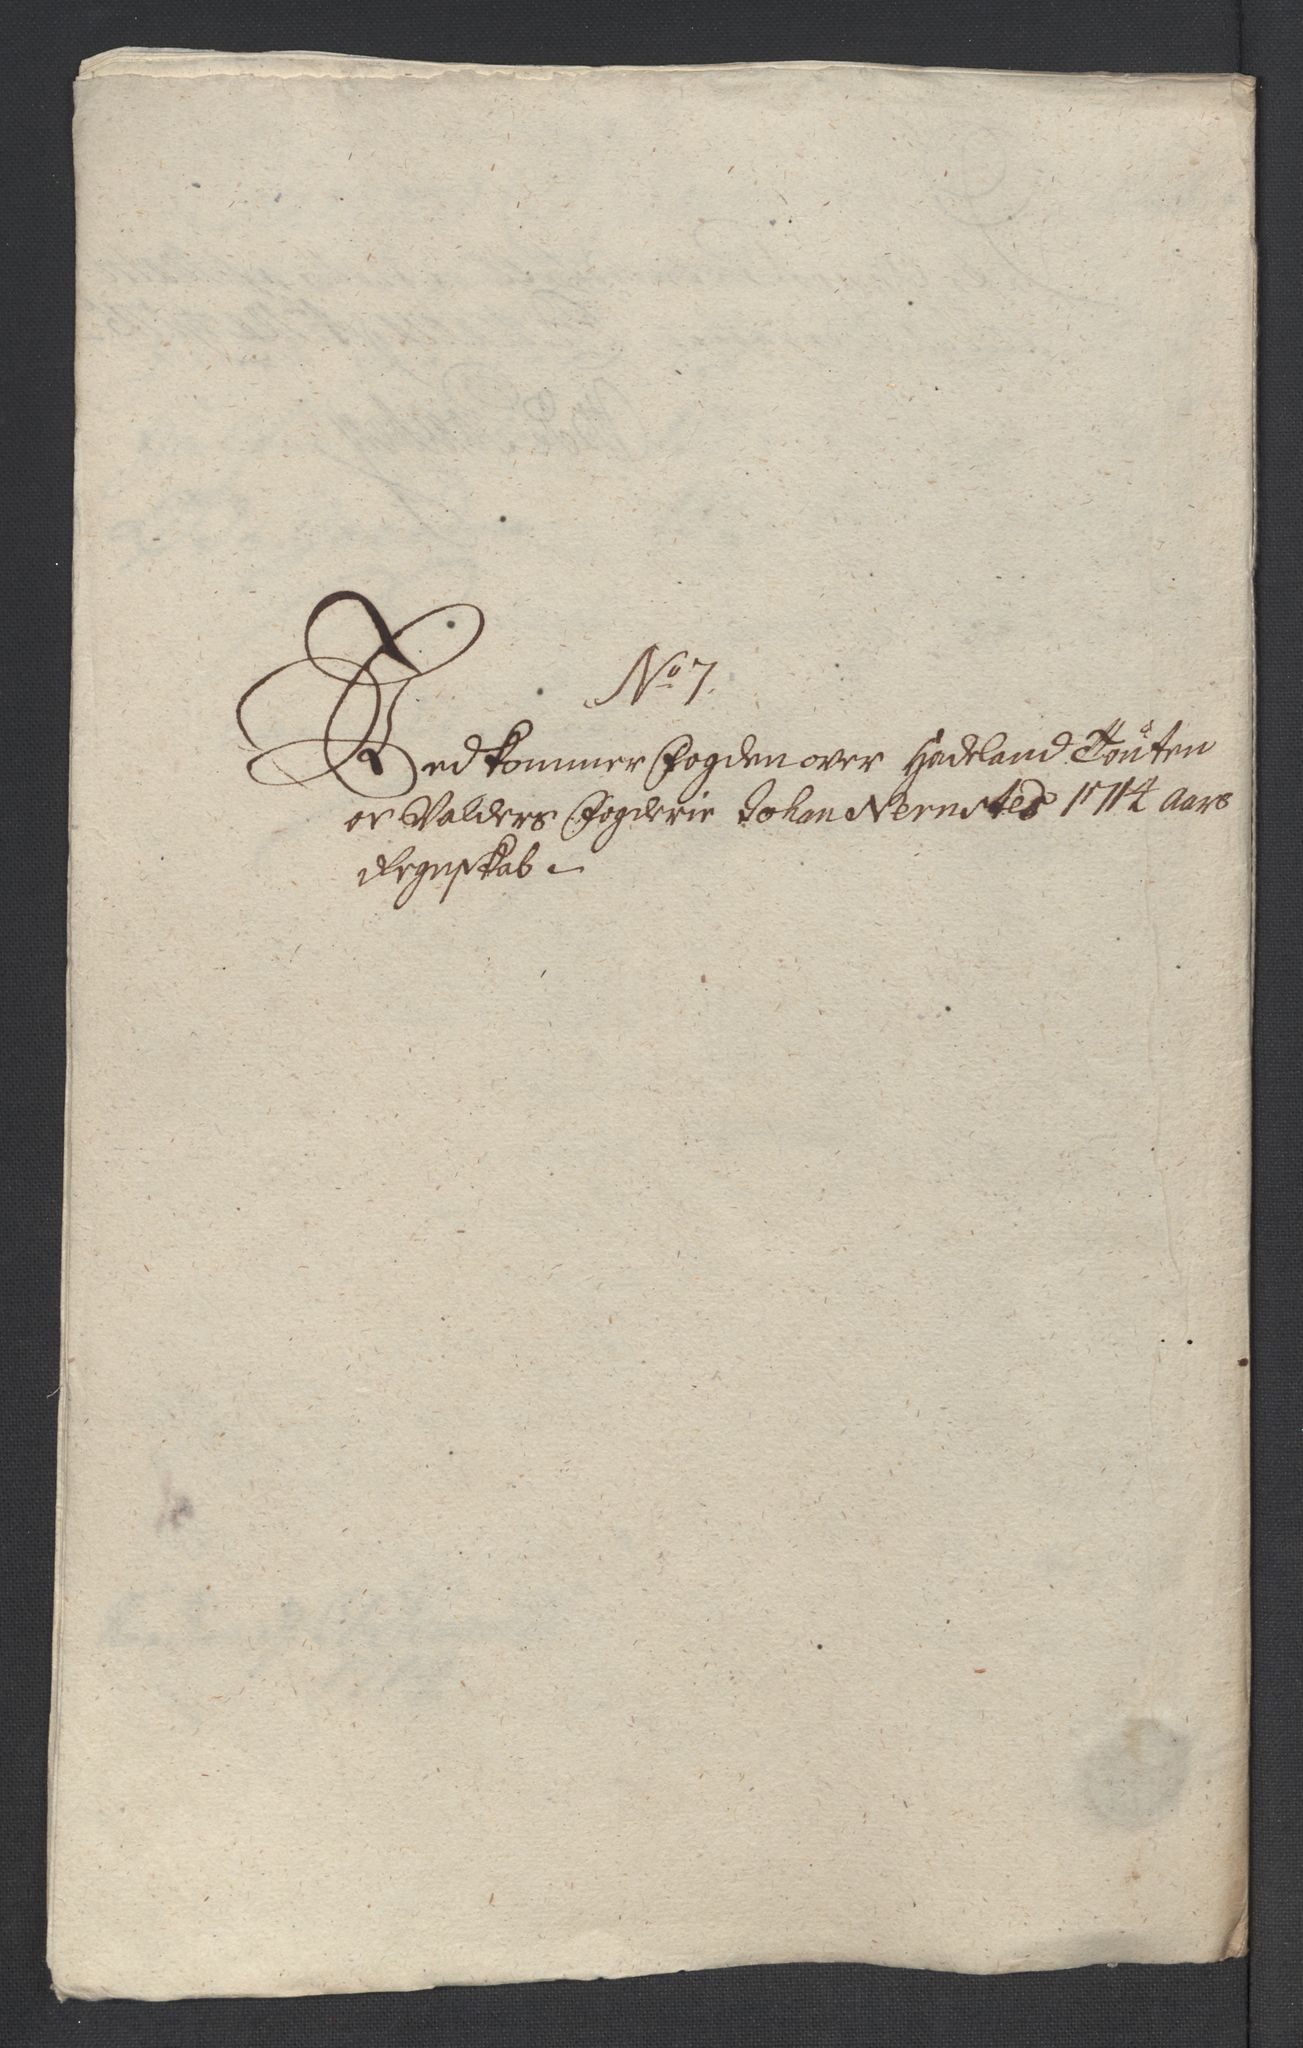 No 7.
Vedkommer Fogden over Hadeland Toten
oc Valders Fogderie Johan Nernsted 1714 Aars
Regnskab.